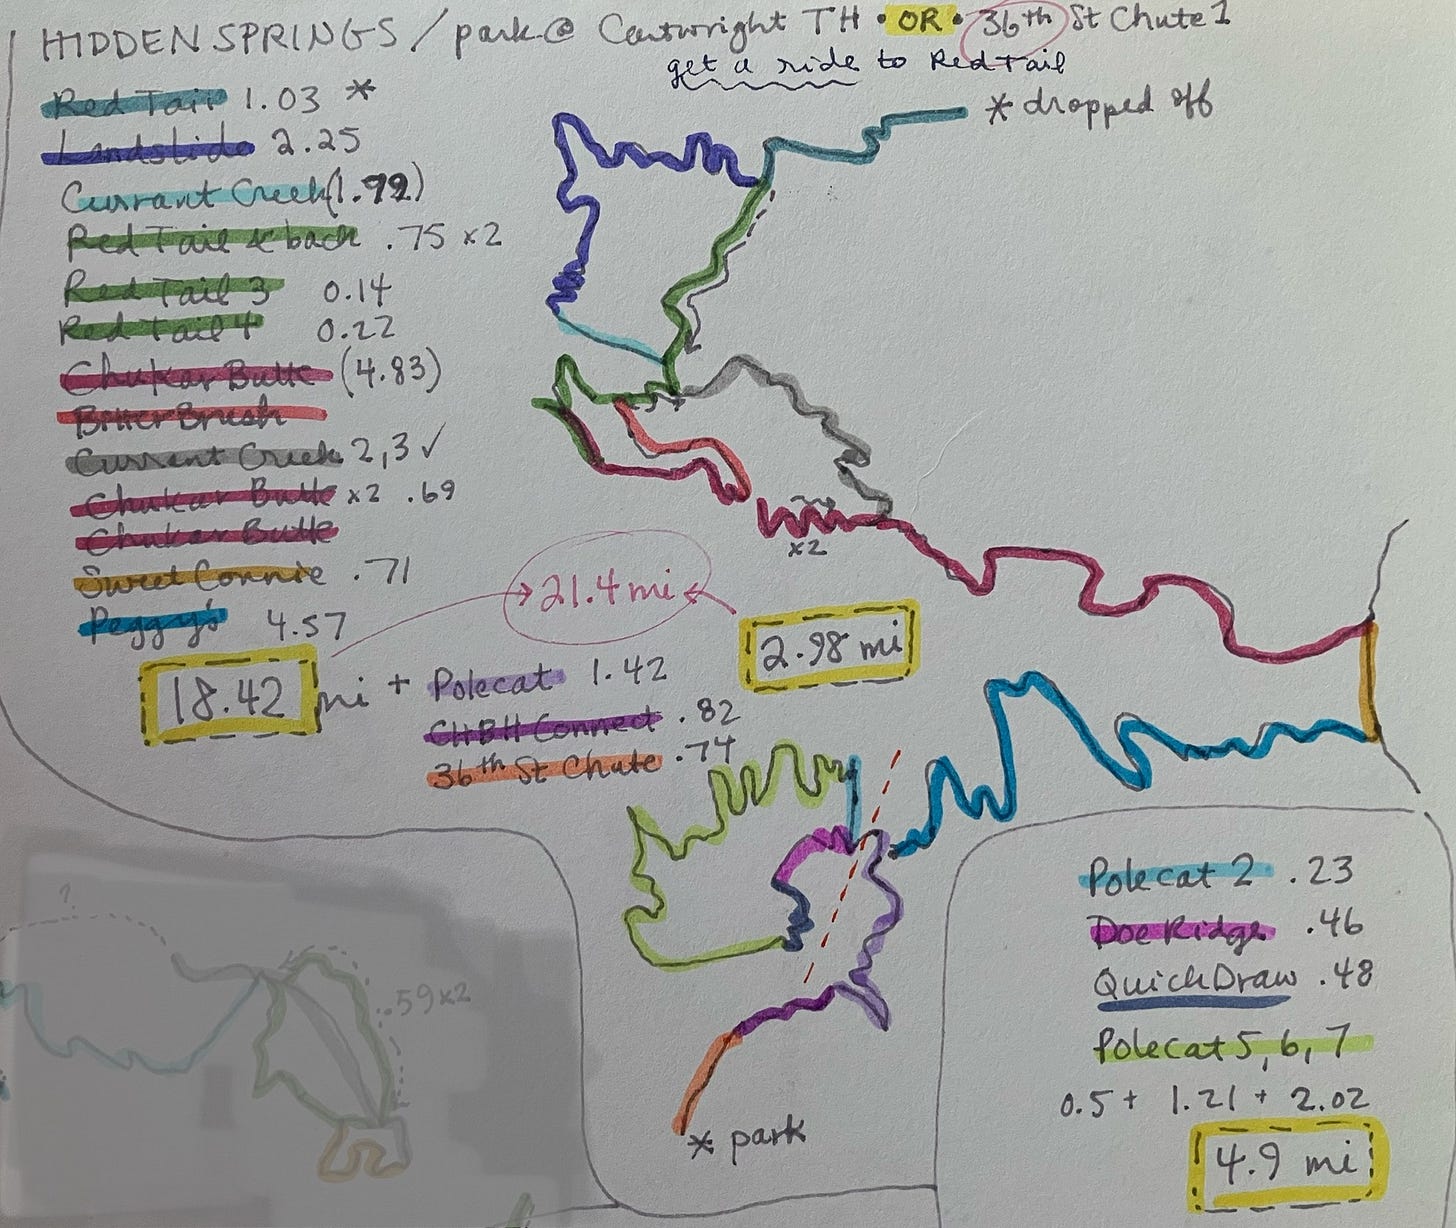 HIDDEN SPRINGS / park @ Cartwright TH • OR • 36th St Chute 1
get a ride to Red Tail
* dropped off
Red Tail 1.03 *
Landslide 2.25
Currant Creek (1.92)
Red Tail & back .75 x2
Red Tail 3 0.14
Red Tail 4 0.22
Chukar Butte (4.83)
Bitter Brush
Current Creek 2,3 ✓
Chukar Butte x2 .69
Chukar Butte
Sweet Connie .71
Peggy's 4.57
18.42 mi +
x2
21.4 mi
2.98 mi
Polecat 1.42
CHBH Connect .82
36th St Chute .74
?
.59 x2
* park
Polecat 2 .23
Doe Ridge .46
QuickDraw .48
Polecat 5, 6, 7
0.5 + 1.21 + 2.02
4.9 mi